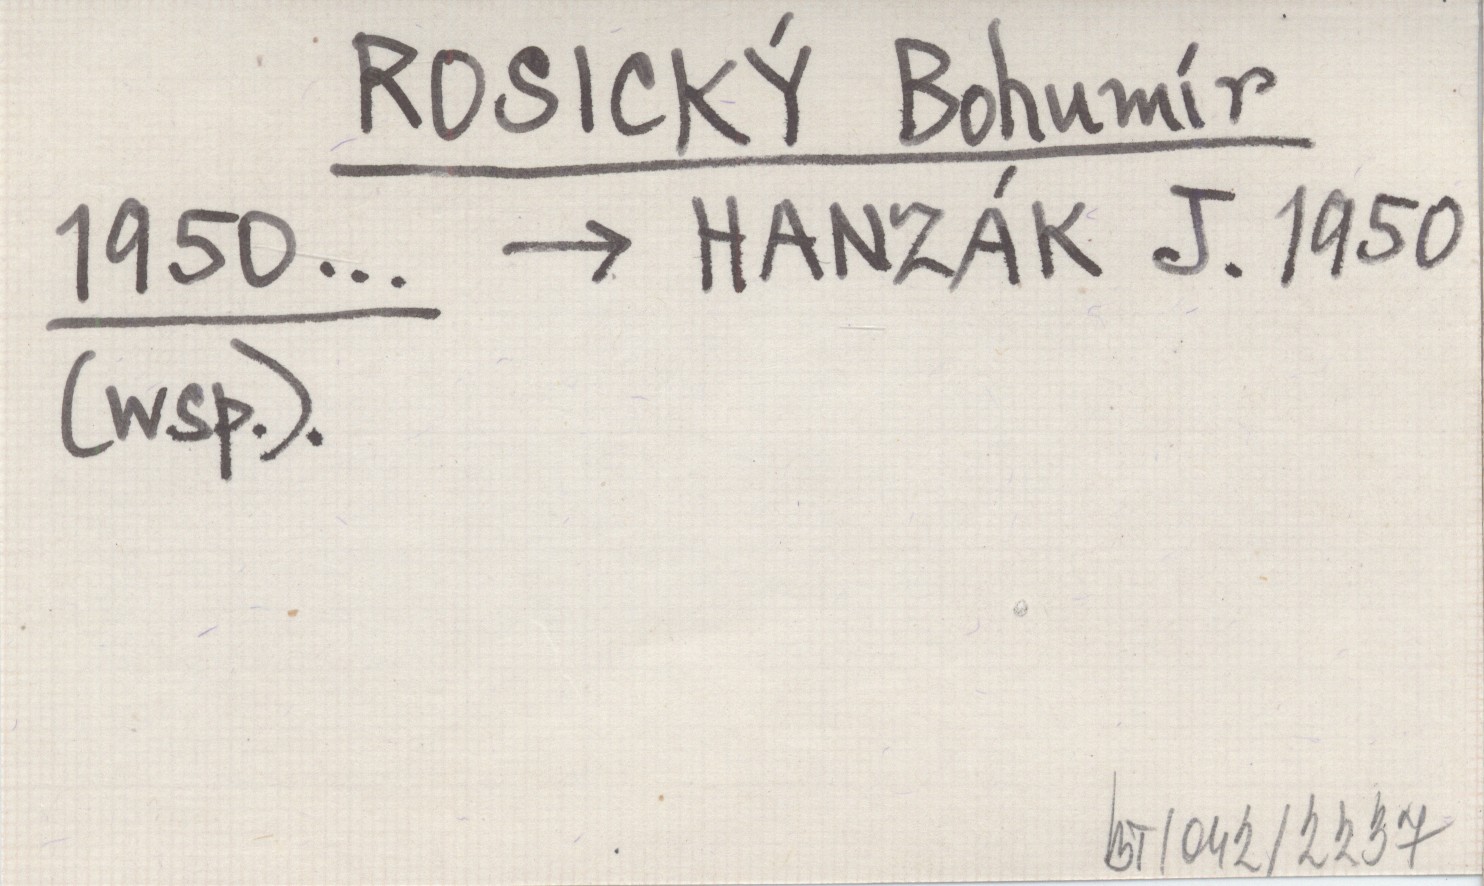 ROSICKÝ Bohumír
1950... → HANZÁK J. 1950
(wsp.).
BT/042/2237